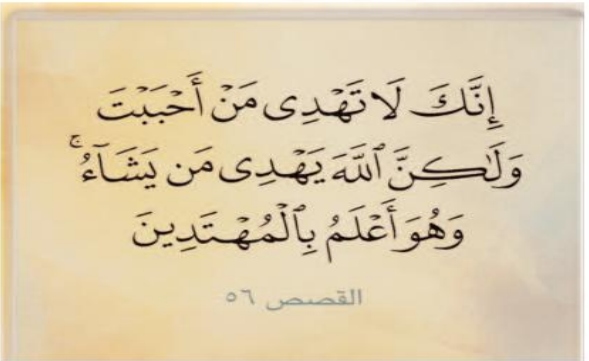 إِنَّكَ لَا تَهْدِى مَنْ أَحْبَبْتَ
وَلَٰكِنَّ ٱللَّهَ يَهْدِى مَن يَشَآءُ ۚ
وَهُوَ أَعْلَمُ بِٱلْمُهْتَدِينَ
القصص ٥٦